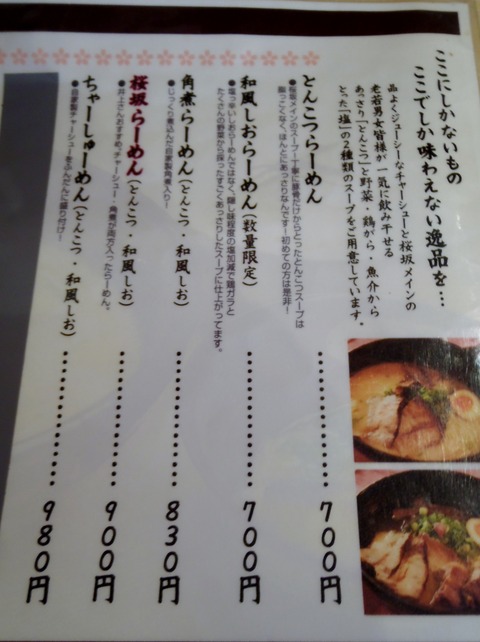 ここにしかないもの
ここでしか味わえない逸品を…
品よくジューシーなチャーシューと桜坂メインの
老若男女皆様が一気に飲み干せる
あっさり「とんこつ」と野菜・鶏がら・魚介から
とった「塩」の2種類のスープをご用意しています。
とんこつらーめん……………700円
●桜坂メインのスープ!丁寧に豚骨だけからとったとんこつスープは
脂っこくなく、ほんとにあっさりなんです!初めての方は是非!
和風しおらーめん(数量限定)……………700円
●塩っ辛いしおらーめんではなく、隠し味程度の塩加減で鶏ガラと
たくさんの野菜から採ったすごくあっさりしたスープに仕上がってます。
角煮らーめん(とんこつ・和風しお)……………830円
●じっくり煮込んだ自家製角煮入り!
桜坂らーめん(とんこつ・和風しお)……………900円
●井上さんおすすめ。チャーシュー・角煮が両方入ったらーめん。
ちゃーしゅーめん(とんこつ・和風しお)……………980円
●自家製チャーシューをふんだんに盛り付け!